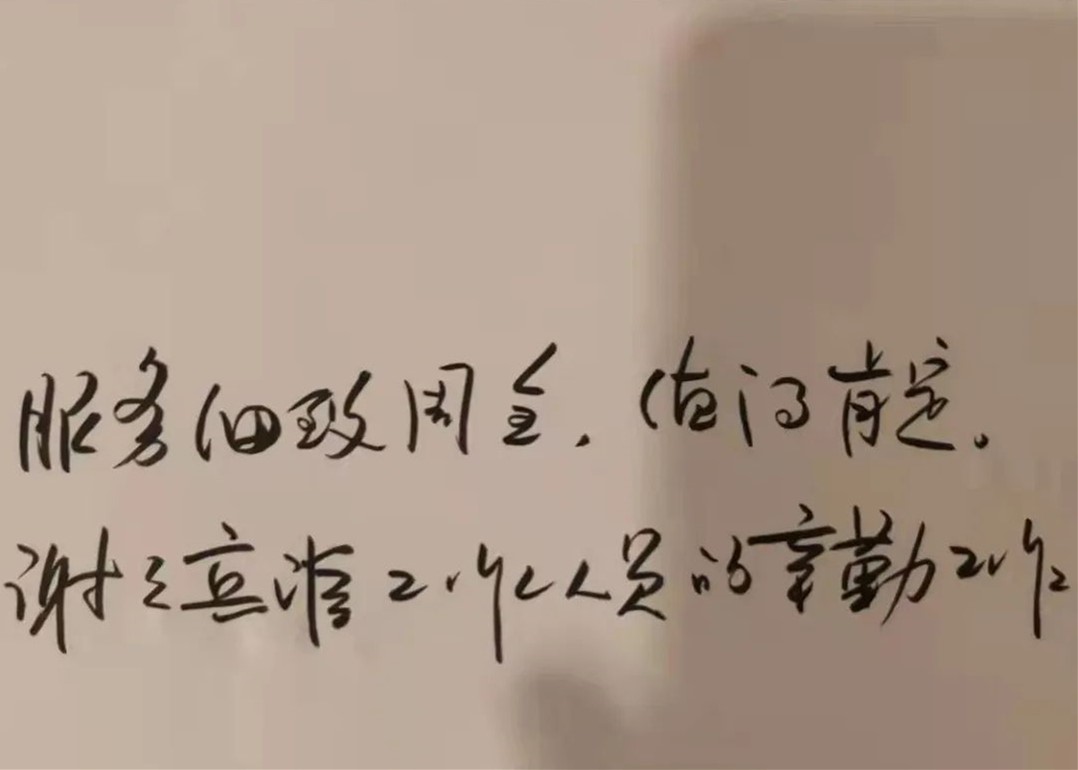 服务细致周全,值得肯定。
谢谢 工作人员的辛勤工作